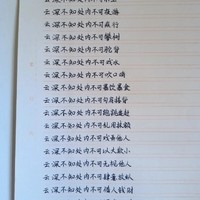 云深不知处内不可夜游
云深不知处内不可疾行
云深不知处内不可攀树
云深不知处内不可
云深不知处内不可戏水
云深不知处内不可吹口哨
云深不知处内不可暴饮暴食
云深不知处内不可勾肩搭背
云深不知处内不可跑跳追赶
云深不知处内不可乱用抹额
云深不知处内不可戏弄他人
云深不知处内不可以大欺小
云深不知处内不可无視他人
云深不知处内不可肆意放纵
云深不知处内不可借人钱财